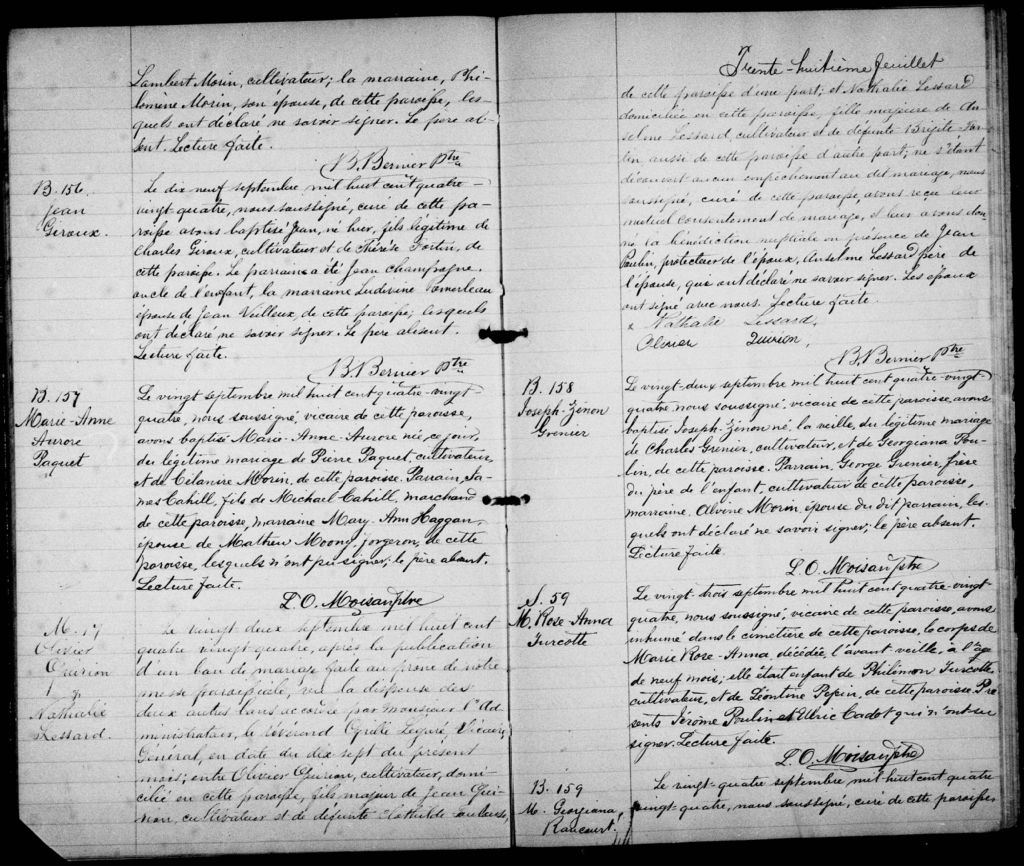 Lambert Morin, cultivateur; la marraine, Phi-
lomène Morin, son épouse, de cette paroisse, les-
quels ont déclaré ne savoir signer. Le père ab-
sent. Lecture faite.
B. Bernier Ptre
B. 156.
Jean
Giroux.
Le dix neuf septembre mil huit cent quatre-
vingt-quatre, nous soussigné, curé de cette pa-
roisse avons baptisé Jean, né hier, fils légitime de
Charles Giroux, cultivateur et de Thérèse Fortin, de
cette paroisse. Le parrain a été Jean Champagne.
oncle de l'enfant, la marraine Ludivine Pomerleau
épouse de Jean Veilleux, de cette paroisse, lesquels
ont déclaré ne savoir signer. Le père absent.
Lecture faite.
B. Bernier Ptre
B. 157
Marie-Anne
Aurore
Paquet
Le vingt septembre mil huit cent quatre-vingt-
quatre, nous soussigné, vicaire de cette paroisse,
avons baptisé Marie-Anne-Aurore née, ce jour,
du légitime mariage de Pierre Paquet, cultivateur,
et de Célanire Morin, de cette paroisse. Parrain, Ja-
mes Cahill, fils de Michael Cahill, marchand
de cette paroisse, marraine Mary-Ann Haggan,
épouse de Mathew Moony, forgeron, de cette
paroisse, lesquels n'ont pu signer; le père absent.
Lecture faite.
L. O. Moisan Ptre
M. 17
Olivier
Quirion
&
Nathalie
Lessard.
Le vingt deux septembre mil huit cent
quatre vingt-quatre, après la publication
d'un ban de mariage faite au prône de notre
messe paroissiale, vu la dispense des
deux autres bans accordée par Monsieur l'Ad-
ministrateur, le Révérend Cyrille Legaré, Vicaire
Général, en date du dix sept du présent
mois; entre Olivier Quirion, cultivateur, domi-
cilié en cette paroisse, fils majeur de Jean Qui-
rion, cultivateur et de défunte Clothilde
Trente-huitième feuillet
de cette paroisse d'une part; et Nathalie Lessard
domiciliée en cette paroisse, fille majeure de An-
selme Lessard, cultivateur et de défunte Brigite Pou-
lin aussi de cette paroisse d'autre part; ne s'étant
découvert aucun empêchement au dit mariage, nous
soussigné, curé de cette paroisse, avons reçu leur
mutuel consentement de mariage, et leur avons don-
né la bénédiction nuptiale en présence de Jean
Poulin, protecteur de l'époux, Anselme Lessard père de
l'épouse, qui ont déclaré ne savoir signer. Les époux
ont signé avec nous. Lecture faite.
x Nathalie Lessard,
Olivier Quirion,
B. Bernier Ptre
B. 158
Joseph-Zénon
Grenier
Le vingt-deux septembre mil huit cent quatre-vingt-
quatre, nous soussigné, vicaire de cette paroisse, avons
baptisé Joseph-Zénon né, la veille, du légitime mariage
de Charles Grenier, cultivateur, et de Georgiana Pou-
lin, de cette paroisse. Parrain, George Grenier, frère
du père de l'enfant, cultivateur de cette paroisse,
marraine, Alvine Morin, épouse du dit parrain, les-
quels ont déclaré ne savoir signer; le père absent.
Lecture faite.
L. O. Moisan Ptre
S. 59
M. Rose-Anna
Turcotte
Le vingt-trois septembre mil huit cent quatre-vingt-
quatre, nous soussigné, vicaire de cette paroisse, avons
inhumé dans le cimetière de cette paroisse, le corps de
Marie Rose-Anna, décédée, l'avant veille, à l'âge
de neuf mois; elle était enfant de Philémon Turcotte,
cultivateur, et de Léontine Pepin, de cette paroisse. Pré-
sents Jérôme Poulin et Ulric Cadot qui n'ont su
signer. Lecture faite.
L. O. Moisan Ptre
B. 159
M. Georgiana,
Rancourt.
Le vingt-quatre septembre, mil huit cent quatre
vingt-quatre, nous soussigné, curé de cette paroisse,